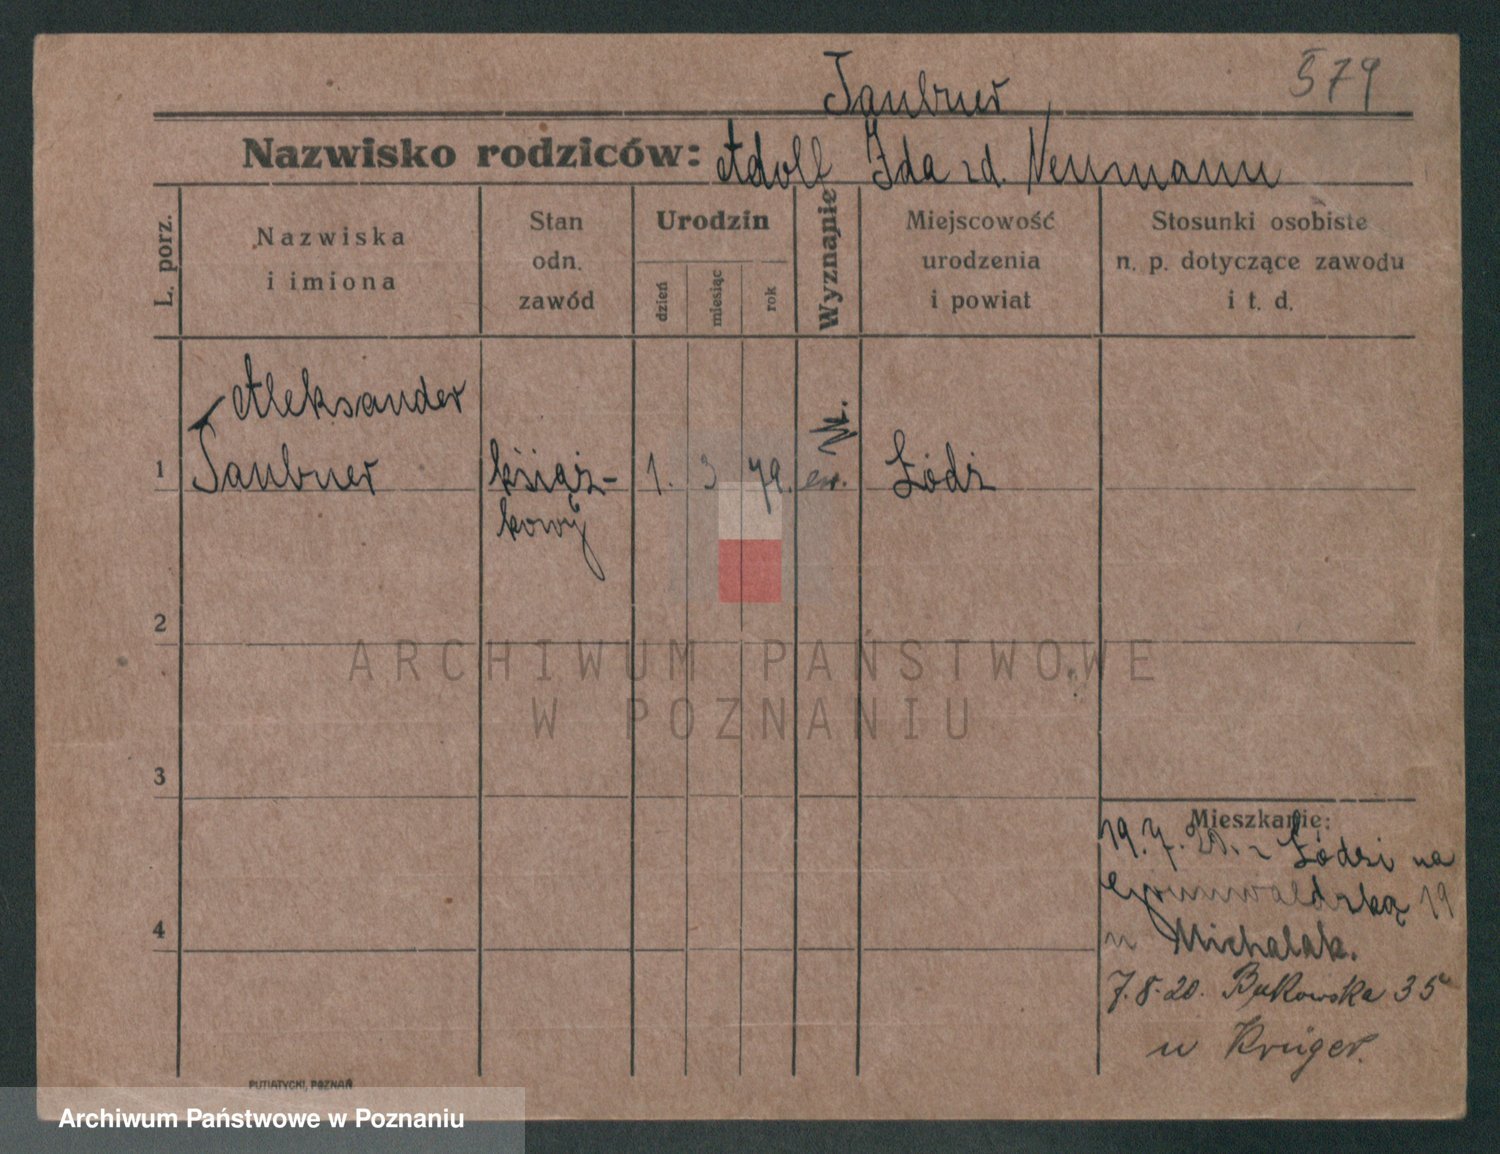 Taubner
579
Nazwisko rodziców: Adolf Ida zd. Neumann
L. porz.
Nazwiska
i imiona
Stan
odn.
zawód
Urodzin
dzień
miesiąc
rok
Wyznanie
Miejscowość
urodzenia
i powiat
Stosunki osobiste
n. p. dotyczące zawodu
i t. d.
Aleksander
1 Taubner książ- 1. 3 79. ew. Łódź
kowy
2
ARCHIWUM PAŃSTWOWE
W POZNANIU
3
Mieszkanie:
19.7.20. z Łodzi na
Grunwaldzką 19
4
u Michalak.
7.8.20. Bukowska 35
u Krüger.
PUTIATYCKI, POZNAŃ
Archiwum Państwowe w Poznaniu